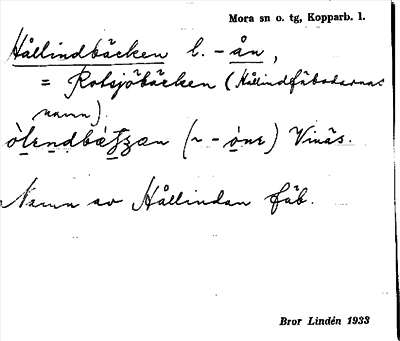 Mora sn o. tg, Kopparb. l.
Hållindbäcken l. - ån,
= Rotsjöbäcken (Hållindfäbodarnas
namn).
Vinäs.
Namn av Hållindan fäb.
Bror Lindén 1933